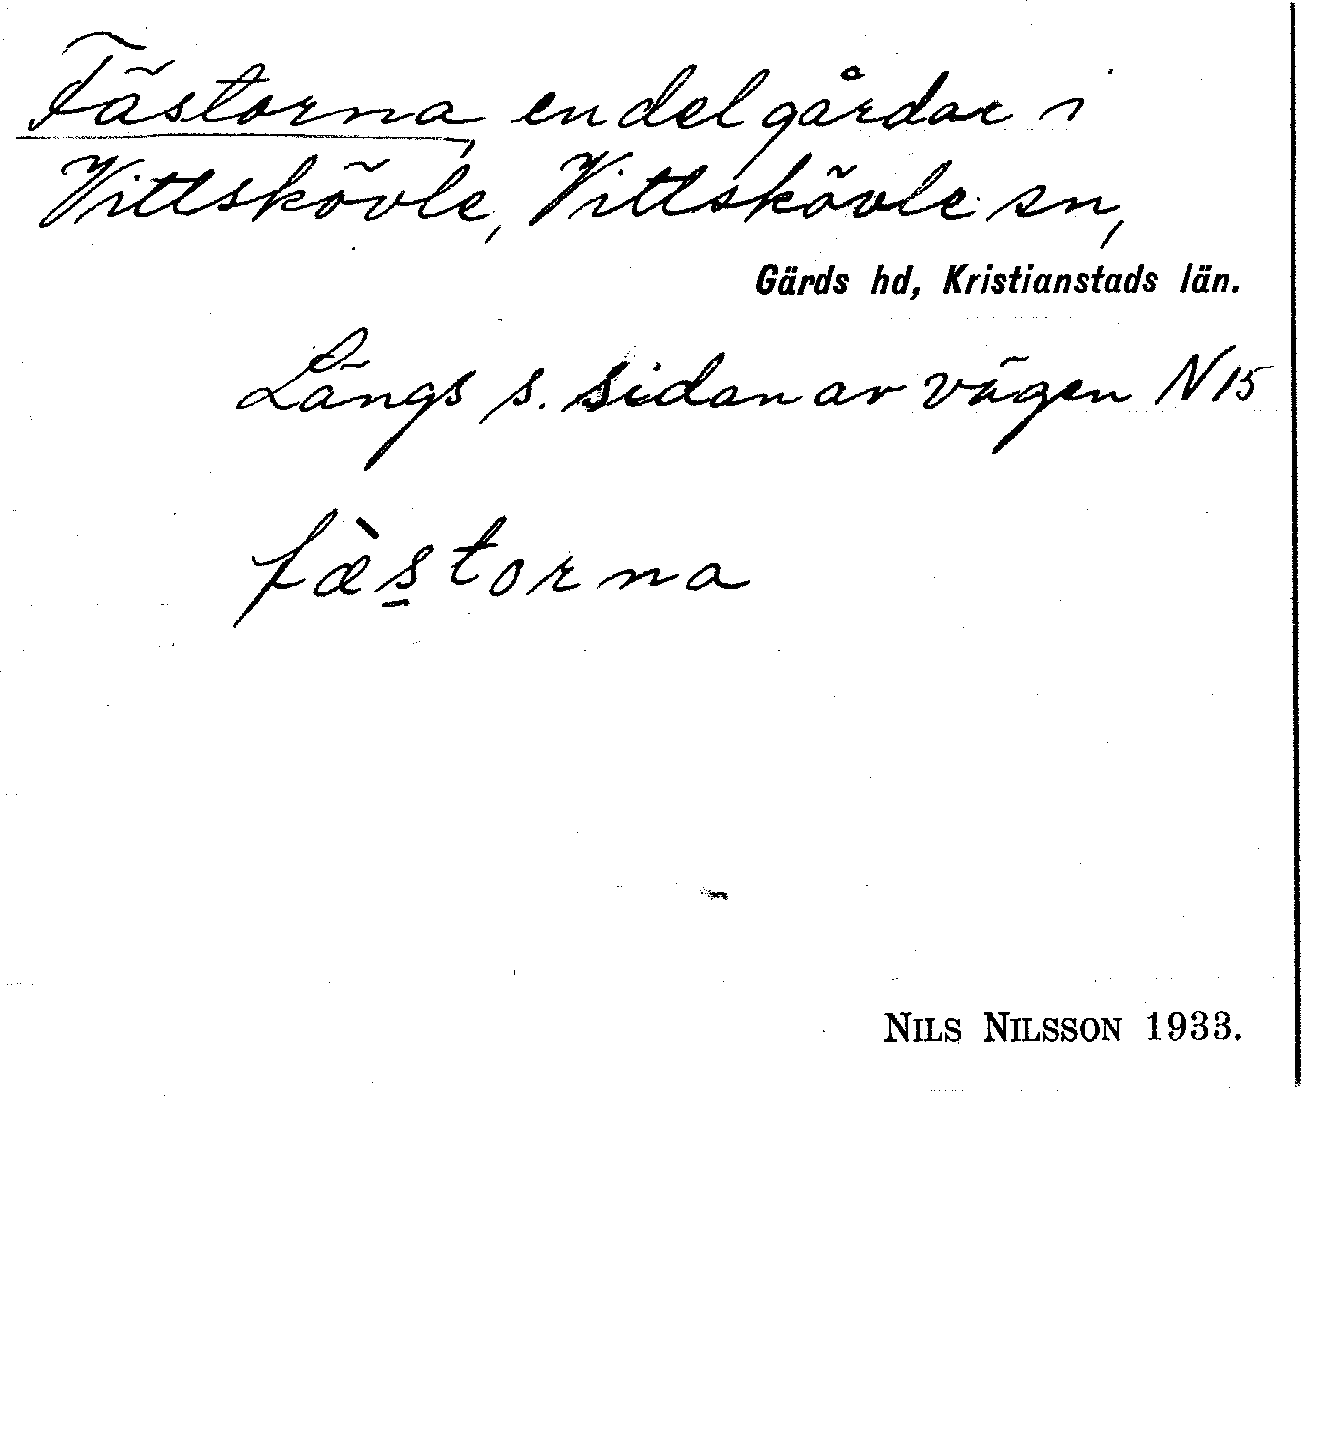 Fästorna, en del gårdar i
Vittskövle, Vittskövle sn,
Gärds hd, Kristianstads län.
Längs s. sidan av vägen N 15
fæ̀s̱torna
NILS NILSSON 1933.